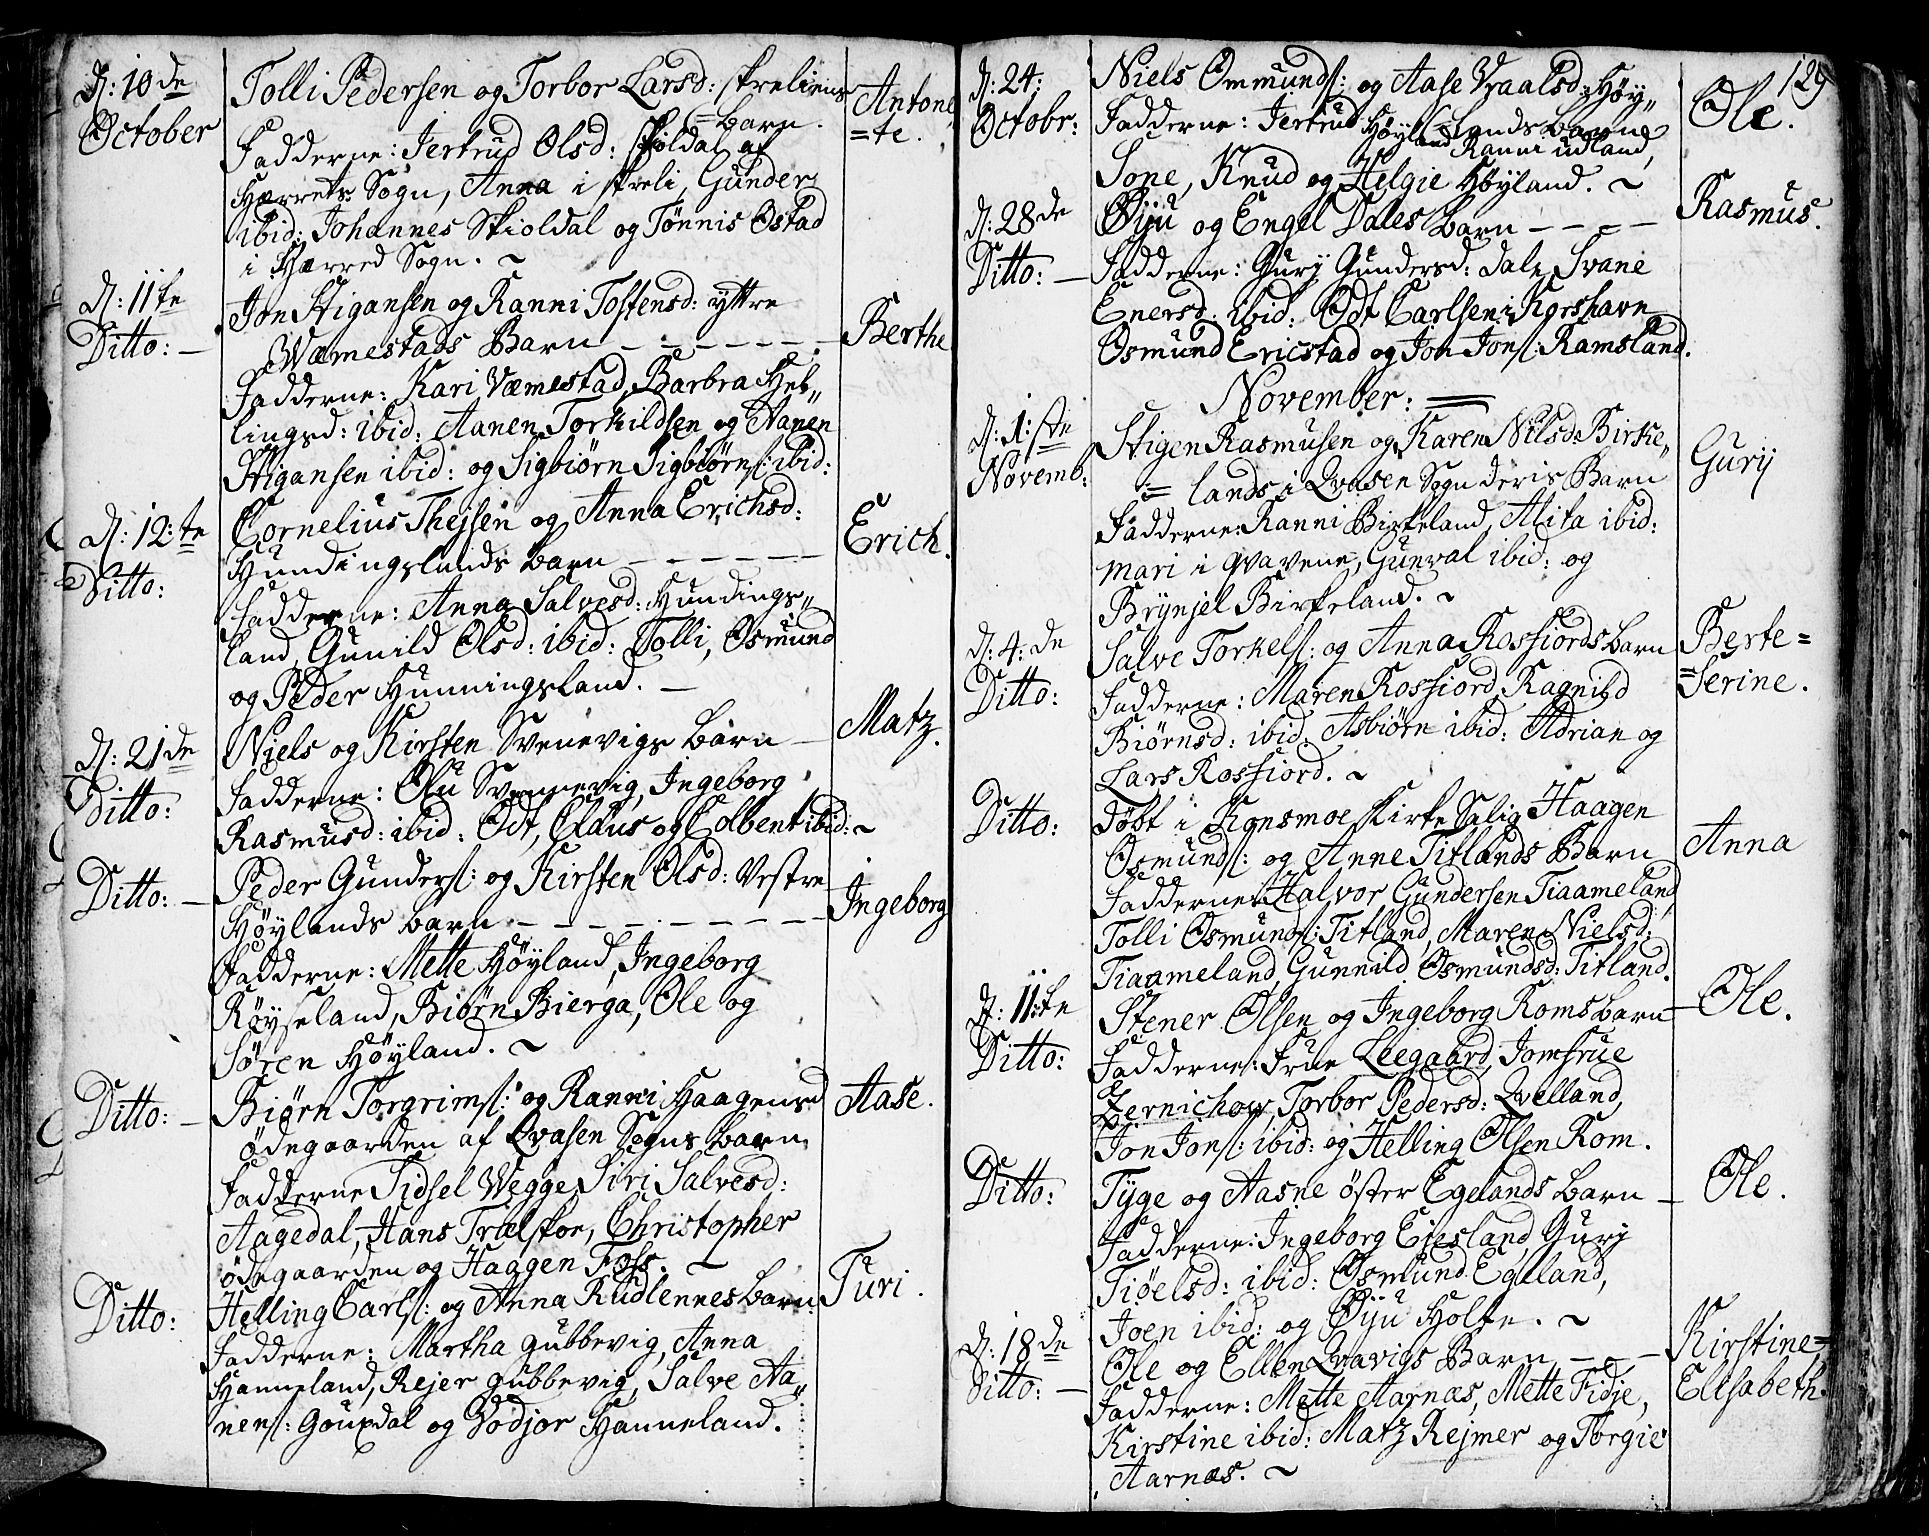 D: 10de
October
Tolli Pedersen og Torbor Larsd: skreliens
= Barn.
Antone
=te.
Fadderne: Jertrud Olsd: Skioldal af
Hærrets Sogn, Anna i skreli, Gunder
ibid: Johannes Skioldal og Tønnis Østad
i Hærred Sogn. ~
D: 11te
Ditto: —
Jon Stigansen og Ranni Tostensd: yttre
Wæmestads Barn — — — — — —
Berthe
Fadderne: Kari Væmestad, Barbra Hel„
lingsd: ibid: Aanen Torkildsen og Aanen
Stigansen ibid: og Sigbiørn Sigbiørns: ibid:
D: 12:te
Ditto:
Cornelius Thejsen og Anna Erichsd:
Hundingslands barn — — — — —
Erich.
Fadderne: Anna Salvesd: Hundings„
land, Gunild Olsd: ibid: Tolli, Osmund
og Peder Hunningsland. —
D: 21de
Ditto:
Niels og Kirsten Svenevigs barn —
Matz.
Fadderne: Olu Svennevig, Ingeborg
Rasmusd: ibid: Odt, Claus og Colbent ibid: ~
Ditto: —
Peder Gunders: og Kirsten Olsd: Vestre
Høylands barn — — — — — — — —
Ingeborg
Fadderne: Mette Høyland, Ingeborg
Røyseland, Biørn Bierga, Ole og
Søren Høyland. ~
Ditto: —
Biørn Torgrims: og Ranni Haagensd
ødegaarden af Qvasen Sogns barn
Aase.
Fadderne Sidsel Wegge, Siri Salvesd:
Aagedal, Hans Trælskor, Christopher
ødegaarden og Haagen Foss. ~
Ditto:
Helling Carls: og Anna Rudlennes barn:
Turi.
Fadderne: Martha gubbevig, Anna
Hanneland, Rejer gubbevig, Salve Aa„
nens: Goupdal og Vodjor Hanneland.
129
D: 24:
Octobr:
Niels Ommunds: og Aase Vraalsd: Høy„
= lands barn
Ole.
Fadderne: Jertrud Høyland Ranni udland,
Sone, Knud og Helgie Høyland. ~
D: 28de
Ditto: —
Øiju og Engel Dales barn — — — —
Rasmus.
Fadderne: Gurij Gundersd: Dale, Svane
Enersd: ibid: Odt Carlsen i Korshavn
Osmund Ericstad og Jon Jons: Ramsland.
November: —
D: 1:ste
Novemb:
Stigen Rasmusen og Karen Nilsd: Birke„
= lands i Qvasen Sogn deris Barn
Gurij
Fadderne: Ranni Birkeland, Alita ibid:
mari i qvavene, Gunval ibid: og
Brynjel Birkeland. ~
D: 4: de
Ditto:
Salve Torkels: og Anna Rosfiords barn
Berte=
=Serine.
Fadderne: Maren Rosfiord, Ragnild
Biørnsd: ibid: Asbiørn ibid: Adrian og
Lars Rosfiord. ~
Ditto:
døbt i Konsmoe Kirke Salig Haagen
Osmunds: og Anne Titlands Barn
Anna
Fadderne: Halvor Gundersen Tiaameland
Tolli Osmunds: Titland, Maren Nielsd:
Tiaameland, Gunnild Osmundsd: Titland.
D: 11:te
Ditto:
Stener Olsen og Ingeborg Roms barn —
Ole.
Fadderne: Frue Leegaard, Jomfrue
Zernichow, Torbor Pedersd: Qvelland,
Jon Jons: ibid: og Helling Olsen Rom.
Ditto:
Tyge og Aasne øster Egelands barn —
Ole.
Fadderne: Ingeborg Eiesland, Gurij
Tiøelsd: ibid: Osmund Egeland,
Joen ibid: og Øiju Holte. ~
D: 18de
Ditto: —
Ole og Ellen Qvavigs Barn — — —
Kirstine=
Elisabeth.
Fadderne: Mette Aarnæs, Mette Fidje,
Kirstine ibid: Matz Rejmer og Torgie
Aarnæs. ~